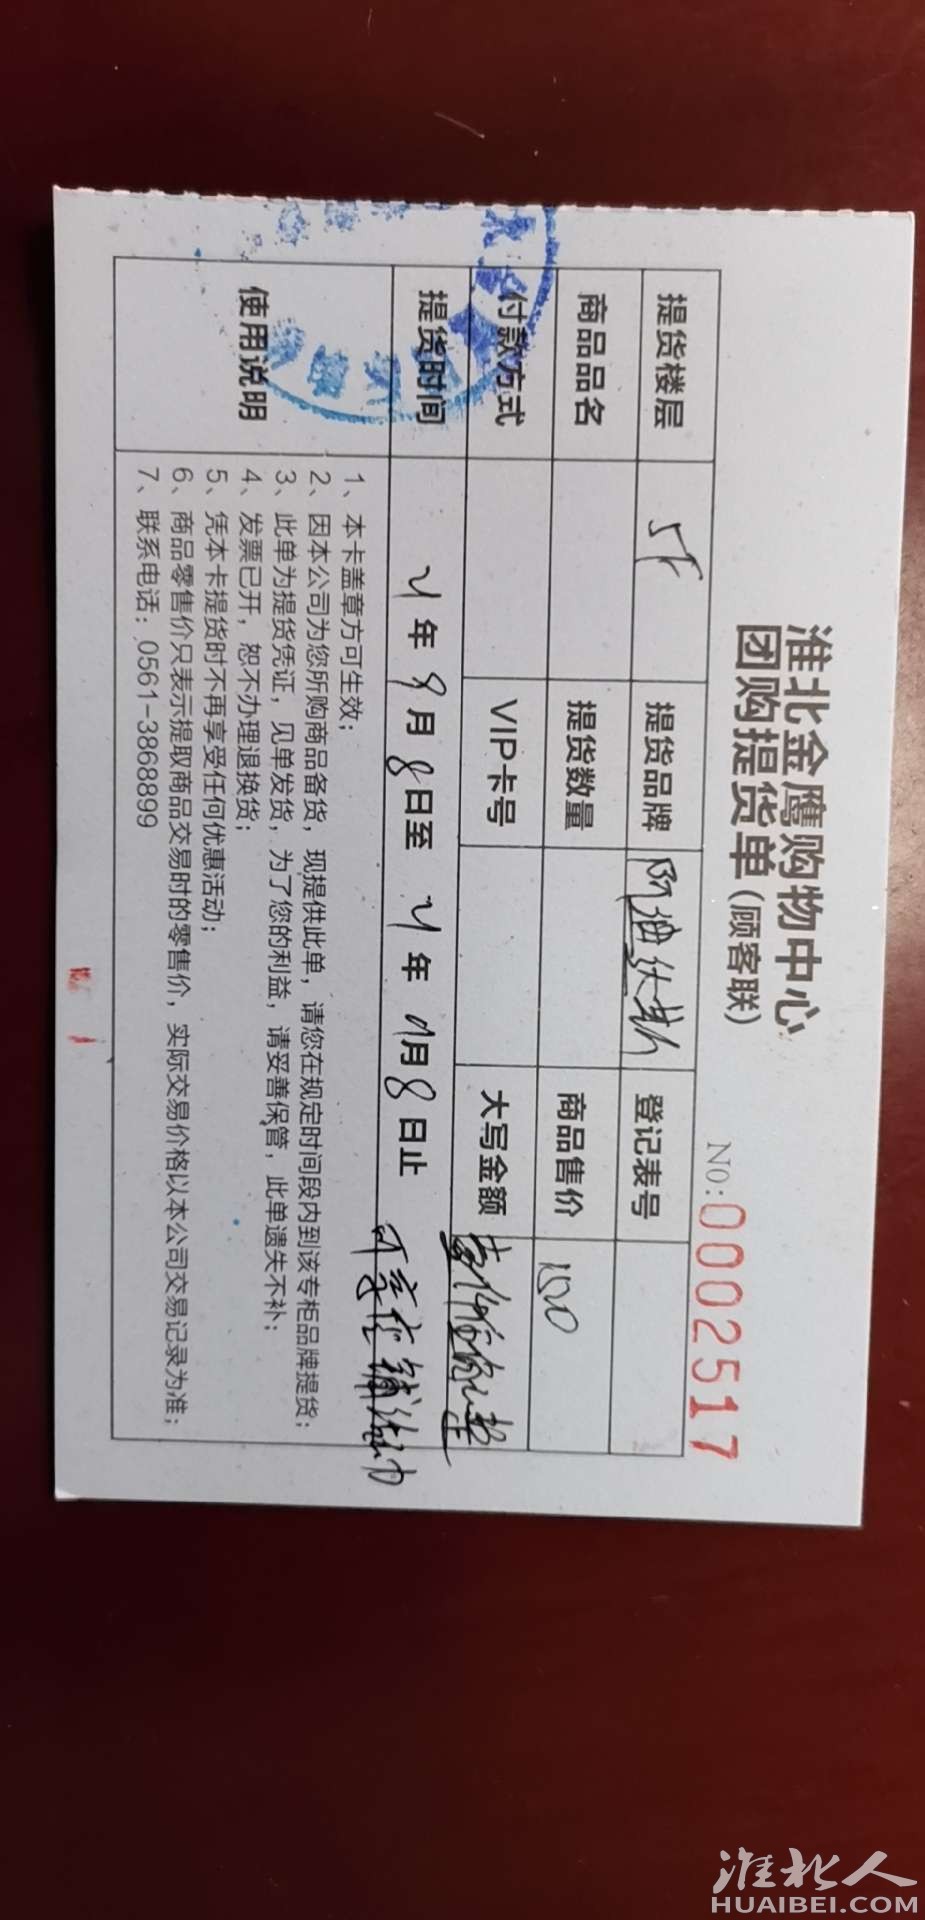 淮北金鹰购物中心
团购提货单(顾客联)
No:0002517
提货楼层 5F 提货品牌 阿迪达斯 登记表号
商品品名 提货数量 商品售价 150
付款方式 VIP卡号 大写金额
提货时间 21年9月8日至 21年 月8日止
使用说明
1、本卡盖章方可生效;
2、因本公司为您所购商品备货,现提供此单,请您在规定时间段内到该专柜品牌提货;
3、此单为提货凭证,见单发货,为了您的利益,请妥善保管,此单遗失不补;
4、发票已开,恕不办理退换货;
5、凭本卡提货时不再享受任何优惠活动;
6、商品零售价只表示提取商品交易时的零售价,实际交易价格以本公司交易记录为准;
7、联系电话:0561-3868899
淮北人
HUAIBEI.COM